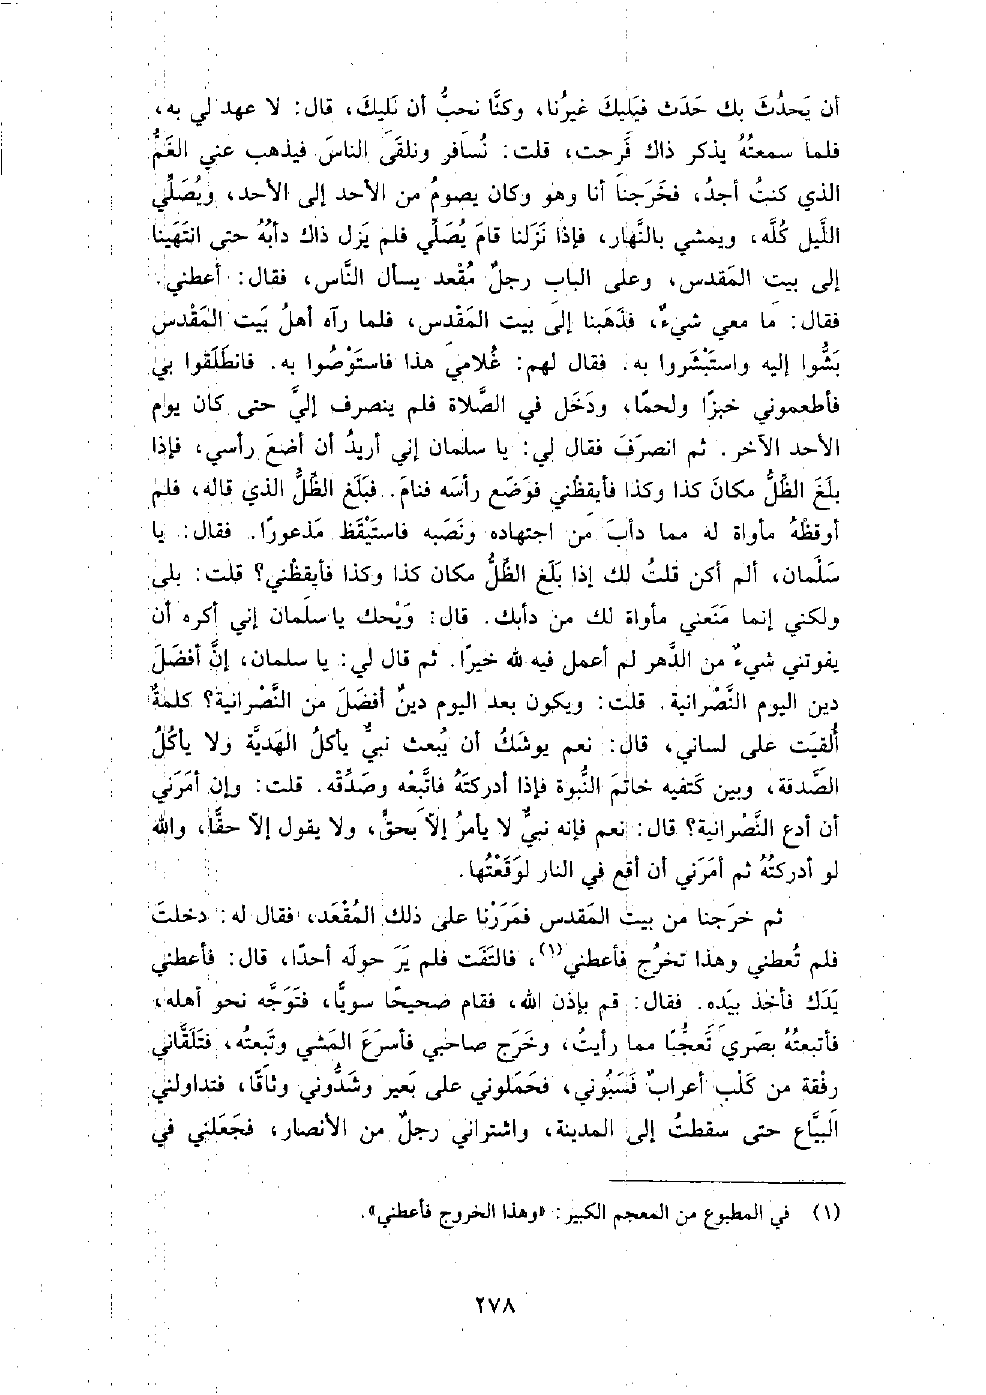 أن يَحدُثَ بك حَدَث فيَليكَ غيرُنا، وكنَّا نحبُّ أن نَليكَ، قال: لا عهد لي به،
فلما سمعتُهُ يذكر ذاك فَرحت، قلت: نُسافر ونلقَى الناسَ فيذهب عني الغَمُّ
الذي كنتُ أجدُ، فخَرَجنا أنا وهو وكان يصومُ من الأحد إلى الأحد، ويُصَلِّي
اللَّيل كُلَّه، ويمشي بالنَّهار، فإذا نَزَلنا قامَ يُصَلِّي فلم يَزل ذاك دأبُهُ حتى انتَهَينا
إلى بيت المَقدس، وعلى الباب رجلٌ مُقْعد يسأل النَّاس، فقال: أعطني.
فقال: ما معي شيءٌ، فذَهَبنا إلى بيت المَقْدس، فلما رآه أهلُ بَيت المَقْدس
بَشُّوا إليه واستَبْشَروا به. فقال لهم: غُلامي هذا فاستَوْصُوا به. فانطَلَقوا بي
فأطعموني خبزًا ولحمًا، ودَخَل في الصَّلاة فلم ينصرف إليَّ حتى كان يوم
الأحد الآخر. ثم انصرَفَ فقال لي: يا سلمان إني أريدُ أن أضعَ رأسي، فإذا
بلَغَ الظِّلُّ مكانَ كذا وكذا فأيقظْني فوَضَع رأسَه فنامَ. فبَلَغ الظِّلُّ الذي قاله، فلم
أوقظْهُ مأواة له مما دأبَ من اجتهاده ونَصَبه فاستَيْقَظ مَذعورًا. فقال: يا
سَلْمان، ألم أكن قلتُ لك إذا بَلَغ الظِّلُّ مكان كذا وكذا فأيقظْني؟ قلت: بلى
ولكني إنما مَنَعني مأواة لك من دأبك. قال: وَيْحك يا سلمان إني أكره أن
يفوتني شيءٌ من الدَّهر لم أعمل فيه لله خيرًا. ثم قال لي: يا سلمان، إنَّ أفضَلَ
دين اليوم النَّصْرانية. قلت: ويكون بعد اليوم دينٌ أفضَلَ من النَّصْرانية؟ كلمةٌ
أُلقيَت على لساني، قال: نعم يوشكُ أن يُبعث نبيٌّ يأكلُ الهَديَّة ولا يأكُلُ
الصَّدقة، وبين كَتفيه خاتمَ النُّبوة فإذا أدركتَهُ فاتَّبعْه وصَدِّقْه. قلت: وإن أمَرَني
أن أدع النَّصْرانية؟ قال: نعم فإنه نبيٌّ لا يأمرُ إلاَّ بحقٍّ، ولا يقول إلاّ حقًّا، والله
لو أدركتُهُ ثم أمَرَني أن أقع في النار لوَقَعْتُها.
ثم خرَجنا من بيت المَقدس فمَرَرْنا على ذلك المُقْعَد، فقال له: دخلتَ
فلم تُعطني وهذا تخرُج فأعطني(١)، فالتَفَت فلم يَرَ حولَه أحدًا، قال: فأعطني
يَدَك فأخذ بيَده. فقال: قم بإذن الله، فقام صحيحًا سويًّا، فتَوَجَّه نحو أهله،
فأتبعتُهُ بصَري تَعجُّبًا مما رأيتُ، وخَرَج صاحبي فأسرَعَ المَشي وتَبعتُه، فتَلَقَّاني
رفْقة من كَلْب أعرابٌ فسَبُوني، فحَمَلوني على بَعير وشَدُّوني وثاقًا، فتداولني
البيَّاع حتى سقطتُ إلى المدينة، واشتراني رجلٌ من الأنصار، فجَعَلني في
(١) في المطبوع من المعجم الكبير: «وهذا الخروج فأعطني».
٢٧٨